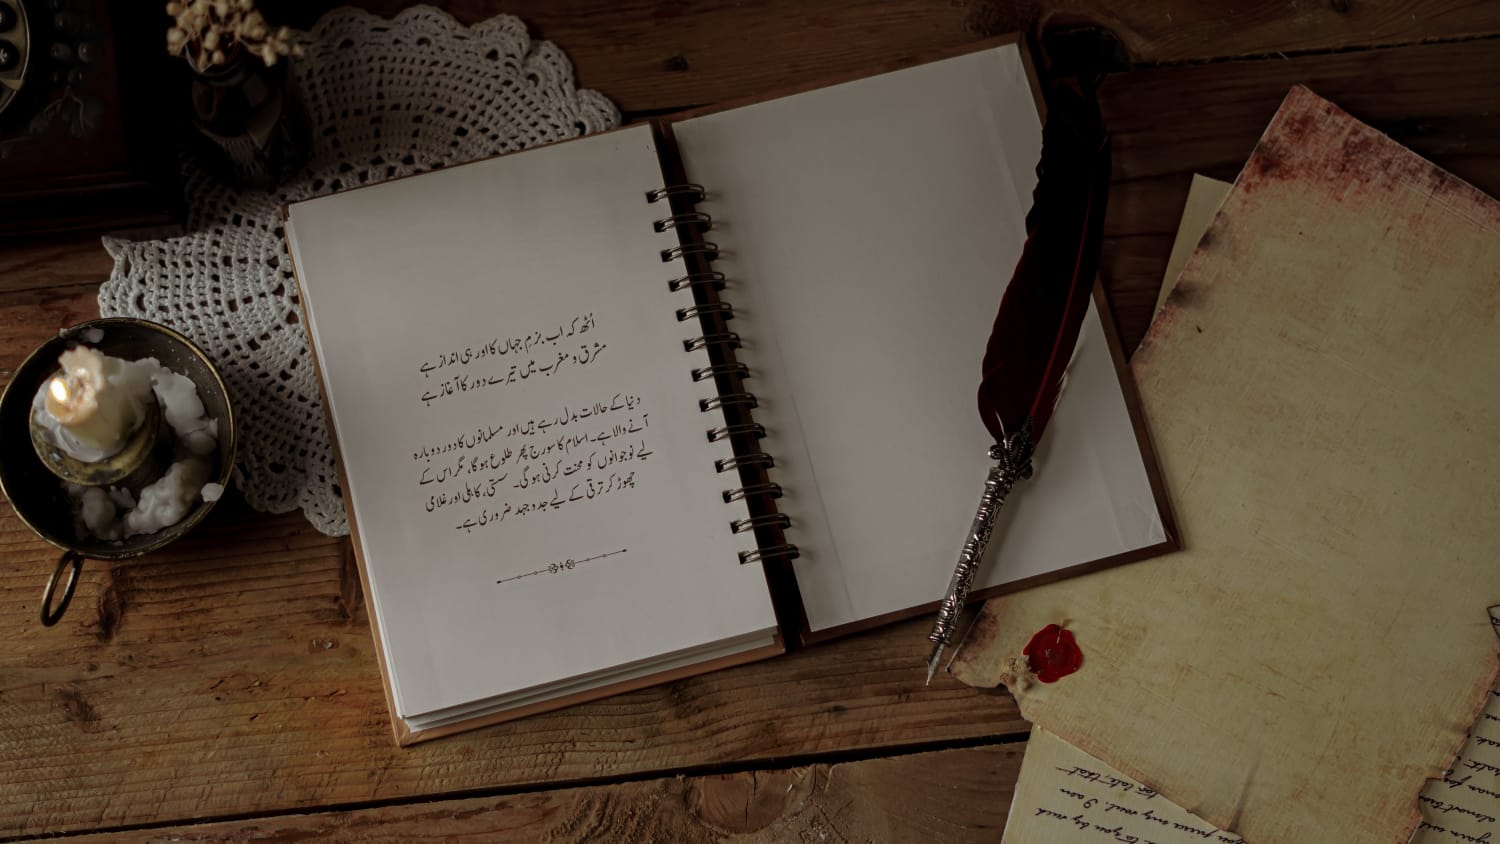 اُٹھ کہ اب بزمِ جہاں کا اور ہی انداز ہے
مشرق و مغرب میں تیرے دور کا آغاز ہے
دنیا کے حالات بدل رہے ہیں اور مسلمانوں کا دور دوبارہ
آنے والا ہے۔ اسلام کا سورج پھر طلوع ہو گا، مگر اس کے
لیے نوجوانوں کو محنت کرنی ہو گی۔ سستی، کاہلی اور غلامی
چھوڑ کر ترقی کے لیے جدوجہد ضروری ہے۔